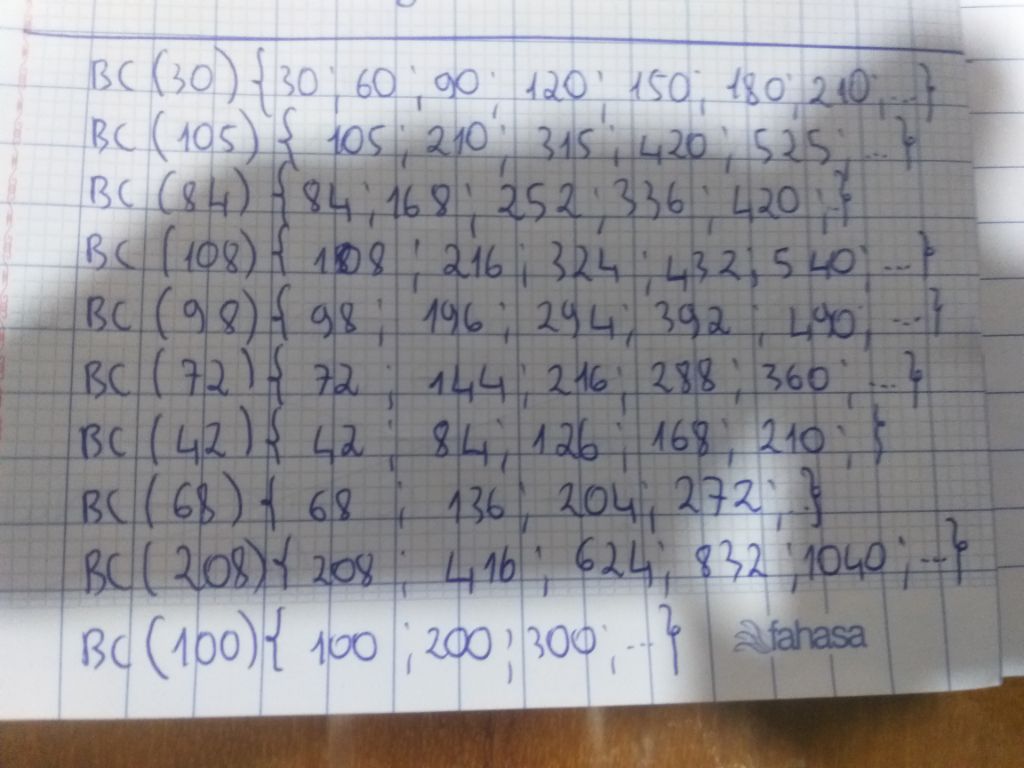 BC (30) { 30 ; 60 ; 90 ; 120 ; 150 ; 180 ; 210 ; ...}
BC (105) { 105 ; 210 ; 315 ; 420 ; 525 ; ...}
BC (84) { 84 ; 168 ; 252 ; 336 ; 420 ; .}
BC (108) { 108 ; 216 ; 324 ; 432 ; 540 ; ...}
BC (98) { 98 ; 196 ; 294 ; 392 ; 490 ; ...}
BC (72) { 72 ; 144 ; 216 ; 288 ; 360 ; ...}
BC (42) { 42 ; 84 ; 126 ; 168 ; 210 ; }
BC (68) { 68 ; 136 ; 204 ; 272 ; .}
BC (208) { 208 ; 416 ; 624 ; 832 ; 1040 ; ...}
BC (100) { 100 ; 200 ; 300 ; ...}
fahasa